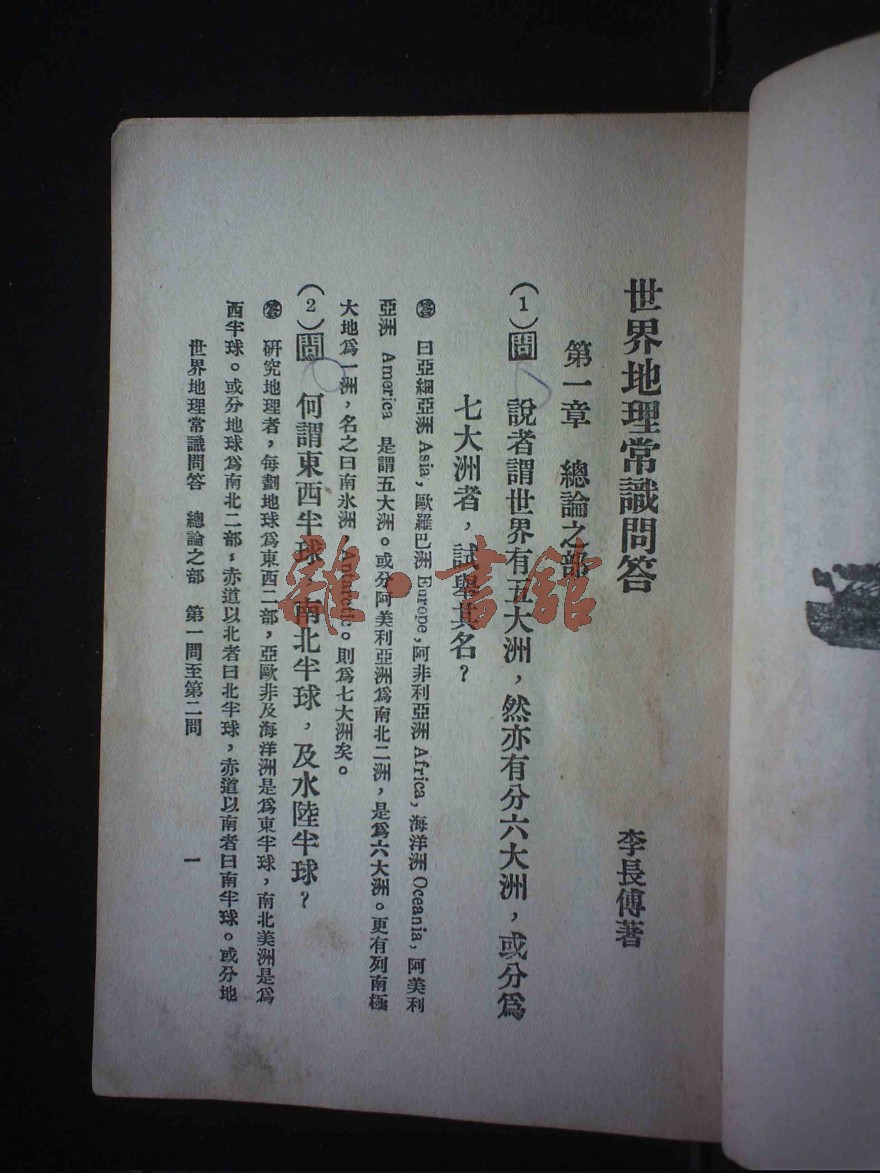 世界地理常識問答
李長傅著
第一章　總論之部
(1)問　說者謂世界有五大洲，然亦有分六大洲，或分爲
七大洲者，試舉其名？
答　曰亞細亞洲 Asia, 歐羅巴洲 Europe, 阿非利亞洲 Africa, 海洋洲 Oceania, 阿美利
亞洲 America 是謂五大洲。或分阿美利亞洲爲南北二洲，是爲六大洲。更有列南極
大地爲一洲，名之曰南氷洲 Antarctic。則爲七大洲矣。
(2)問　何謂東西半球，南北半球，及水陸半球？
答　研究地理者，每劃地球爲東西二部，亞歐非及海洋洲是爲東半球，南北美洲是爲
西半球。或分地球爲南北二部，赤道以北者曰北半球，赤道以南者曰南半球。或分地
世界地理常識問答　總論之部　第一問至第二問
一
雜·書館